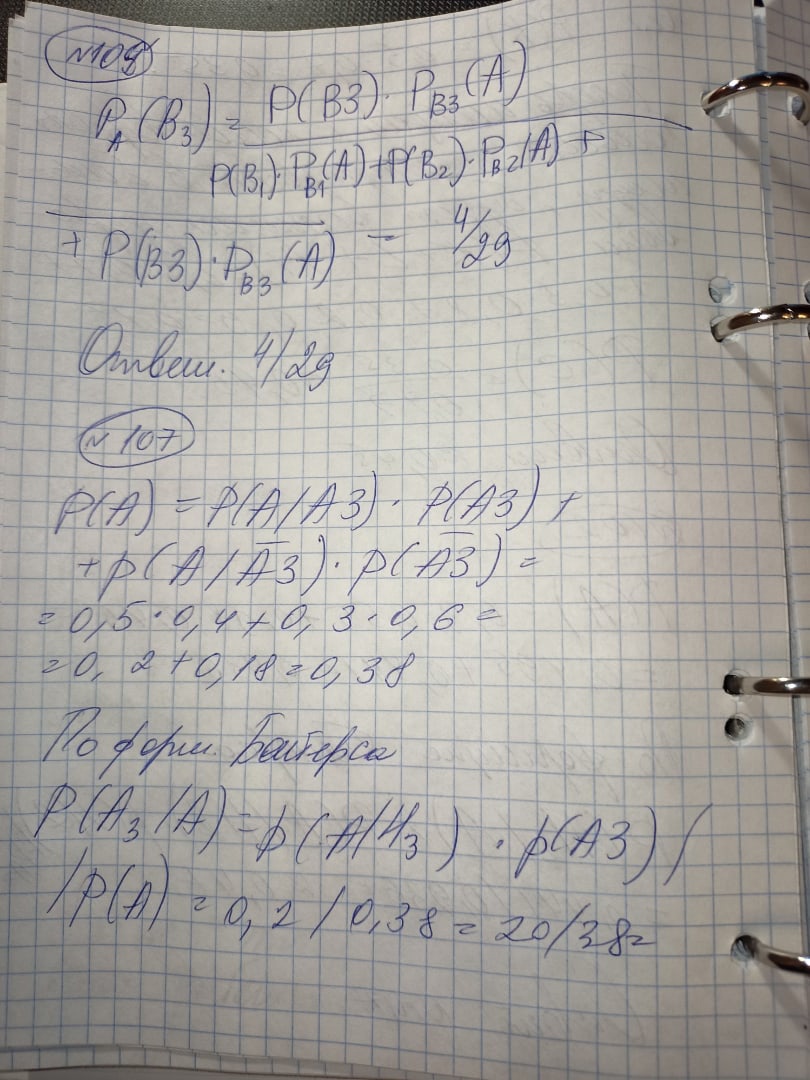 №109
P_A(B_3) = P(B3) · P_B3(A)
P(B_1)·P_B1(A)+P(B_2)·P_B2(A) +
+ P(B3)·P_B3(A) = 4/29
Ответ. 4/29
№107
P(A) = P(A/A3) · P(A3) +
+ p(A/A̅3̅) · P(A̅3̅) =
= 0,5·0,4+0,3·0,6 =
= 0,2+0,18=0,38
По форм. Байерса
P(A_3/A) = p(A/A_3) · p(A3) /
/P(A) = 0,2/0,38 = 20/38=